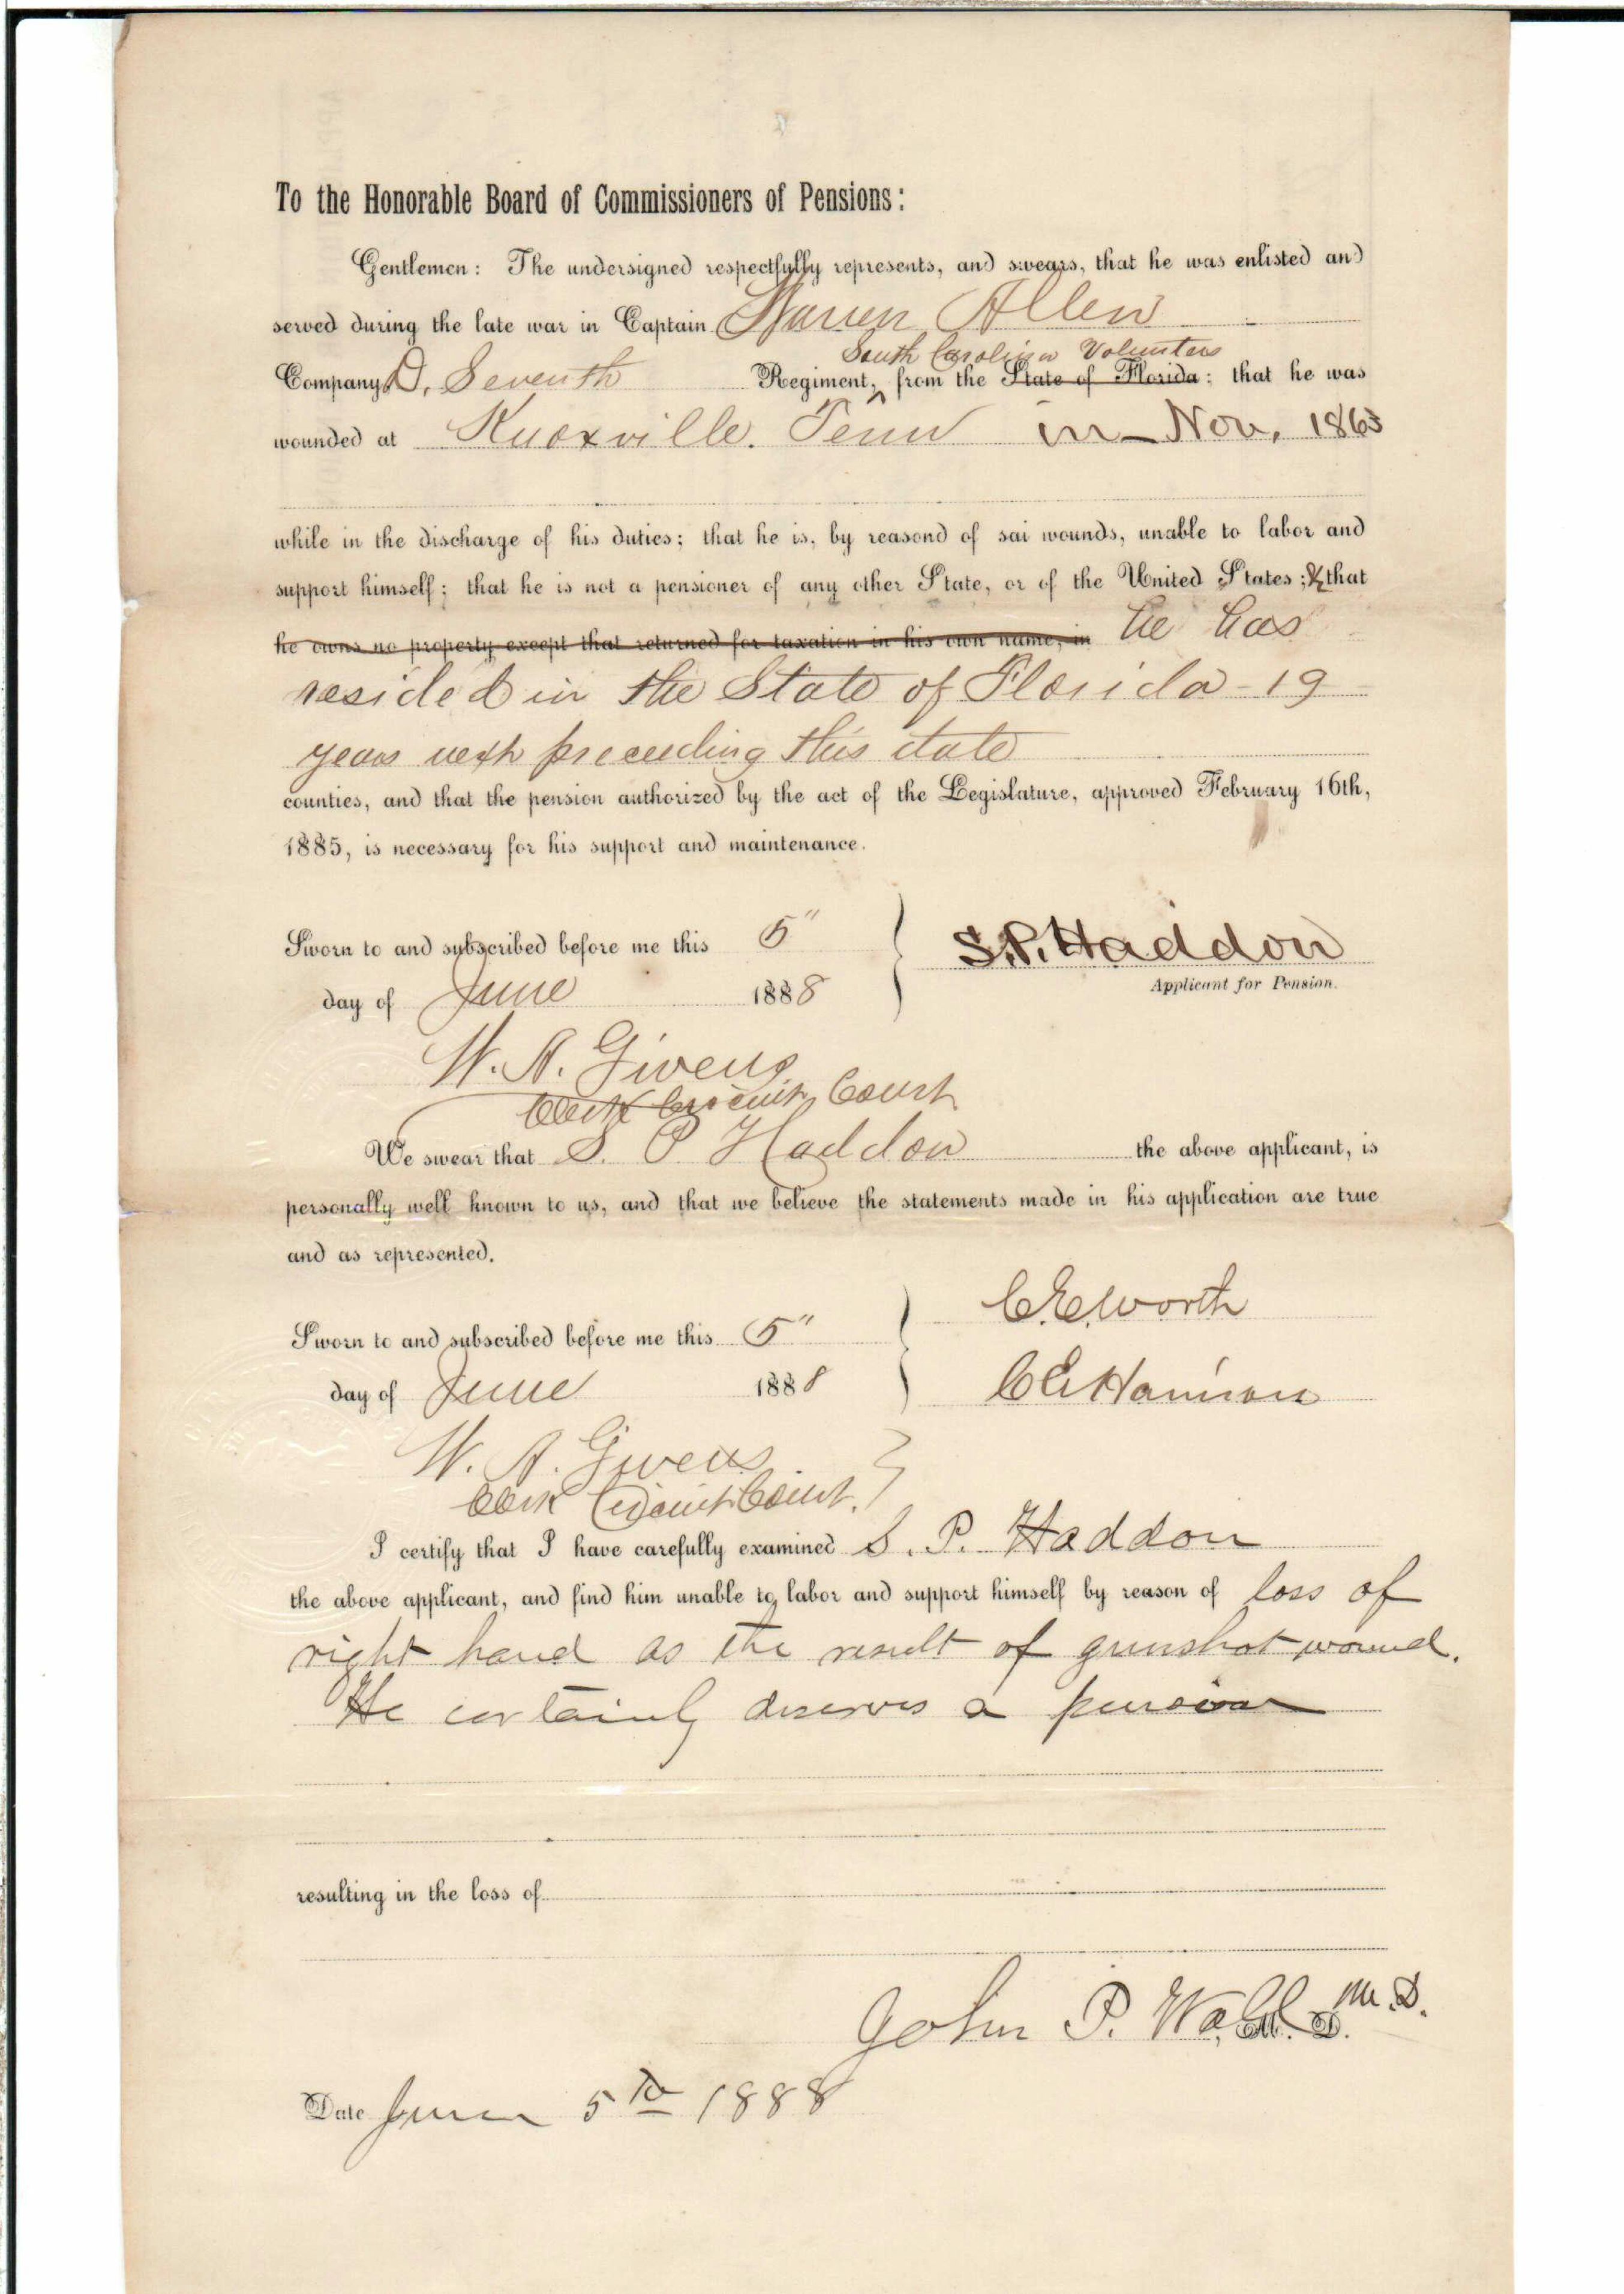 To the Honorable Board of Commissioners of Pensions:
Gentlemen: The undersigned respectfully represents, and swears, that he was enlisted and
served during the late war in Captain Warren Allen
South Carolina Volunteers
Company D, Seventh Regiment, from the State of Florida; that he was
wounded at Knoxville. Tenn in Nov, 1863
while in the discharge of his duties; that he is, by reasond of sai wounds, unable to labor and
support himself; that he is not a pensioner of any other State, or of the United States; & that
he owns no property except that returned for taxation in his own name, in he has
resided in the State of Florida - 19
years next preceeding this date
counties, and that the pension authorized by the act of the Legislature, approved February 16th,
1885, is necessary for his support and maintenance.
Sworn to and subscribed before me this 5"
S.P. Haddon
Applicant for Pension.
day of June 1888
W. A. Givens
Clerk Circuit Court
We swear that S. P. Haddon the above applicant, is
personally well known to us, and that we believe the statements made in his application are true
and as represented.
C.E. Worth
Sworn to and subscribed before me this 5"
day of June 1888
C E Harrison
W. A. Givens
Clerk Circuit Court.
I certify that I have carefully examined S. P. Haddon
the above applicant, and find him unable to labor and support himself by reason of loss of
right hand as the result of gunshot wound.
He certainly deserves a pension
resulting in the loss of
John P. Wall M.D.
M. D.
Date June 5th 1888